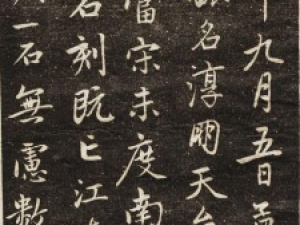 年九月五日孟
名淳朙天台
當宋未度南
石刻既亡江
一石無慮數